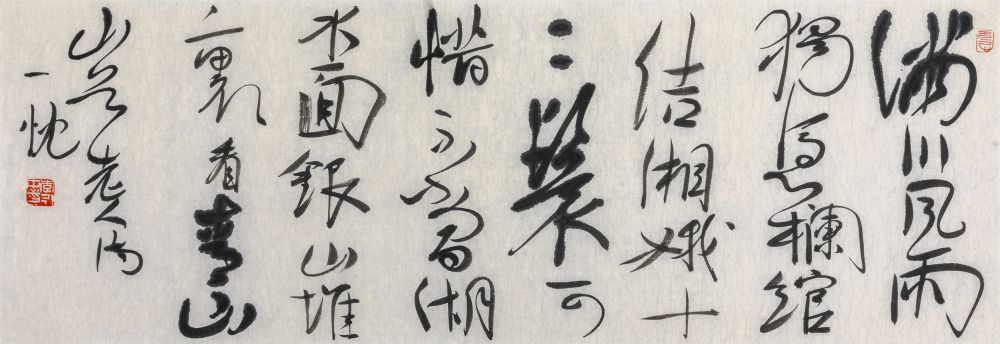 滿川風雨
獨憑欄綰
結湘娥十
二鬟可
惜不當湖
水面銀山堆
裏看青山
山谷老人
一忱